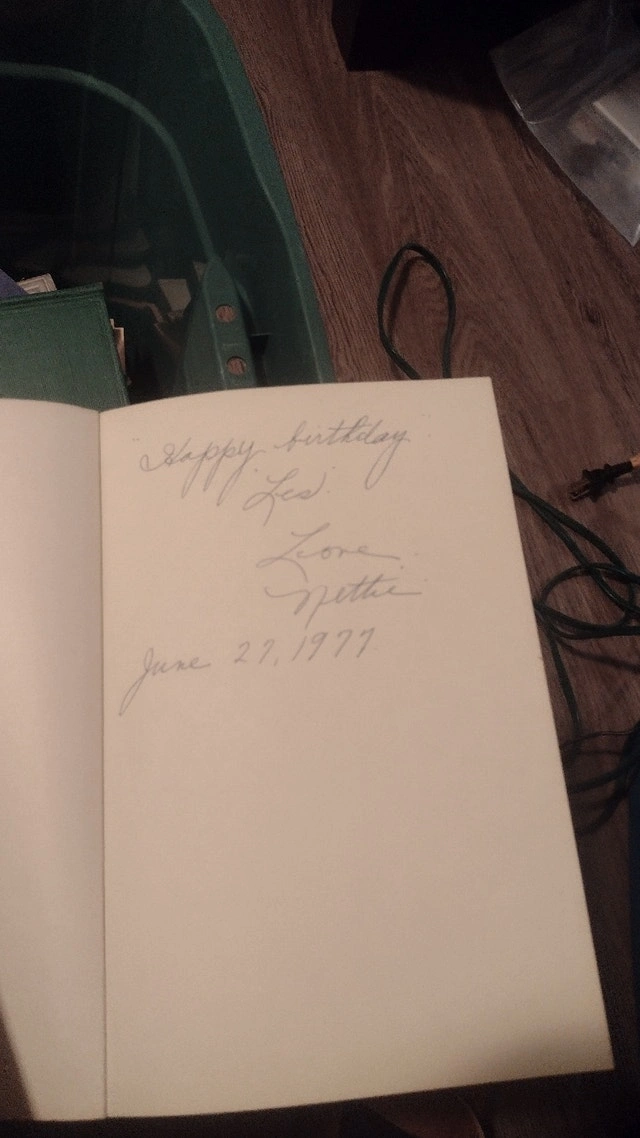 "Happy birthday"
Les.
Love
Nettie
June 27, 1977